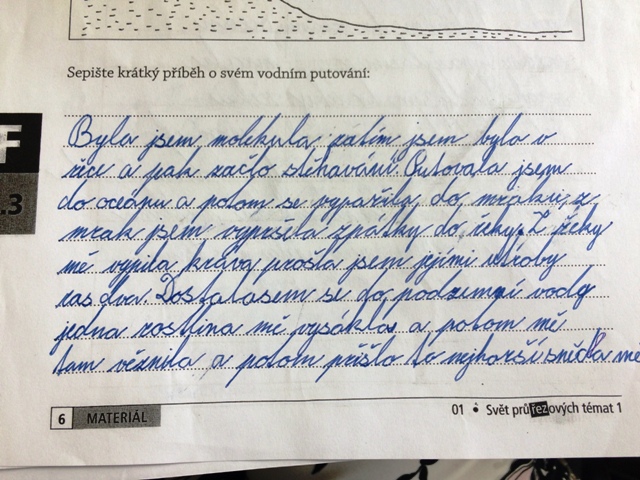 Sepište krátký příběh o svém vodním putování:
Byla jsem molekula zatím jsem byla v
řece a pak začlo stěhavání. Putovala jsem
do oceánu a potom se vypařila do mraku z
mrak jsem vypršela zpátky do řeky. Z řeky
mě vypila kráva prošla jsem jejimi útroby
ras dva. Dostalasem se do podzemní vody
jedna rostlina mě vysákla a potom mě
tam věznila a potom přišlo to nejhorší snědla mě
F
.3
6 MATERIÁL
01 Svět průřezových témat 1